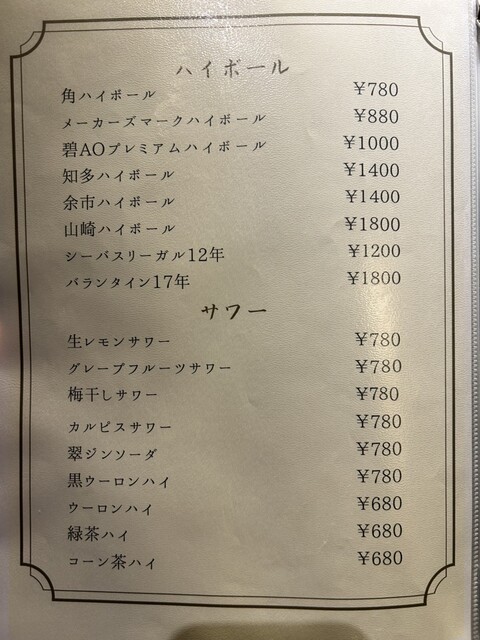 ハイボール
角ハイボール ¥780
メーカーズマークハイボール ¥880
碧AOプレミアムハイボール ¥1000
知多ハイボール ¥1400
余市ハイボール ¥1400
山崎ハイボール ¥1800
シーバスリーガル12年 ¥1200
バランタイン17年 ¥1800
サワー
生レモンサワー ¥780
グレープフルーツサワー ¥780
梅干しサワー ¥780
カルピスサワー ¥780
翠ジンソーダ ¥780
黒ウーロンハイ ¥780
ウーロンハイ ¥680
緑茶ハイ ¥680
コーン茶ハイ ¥680